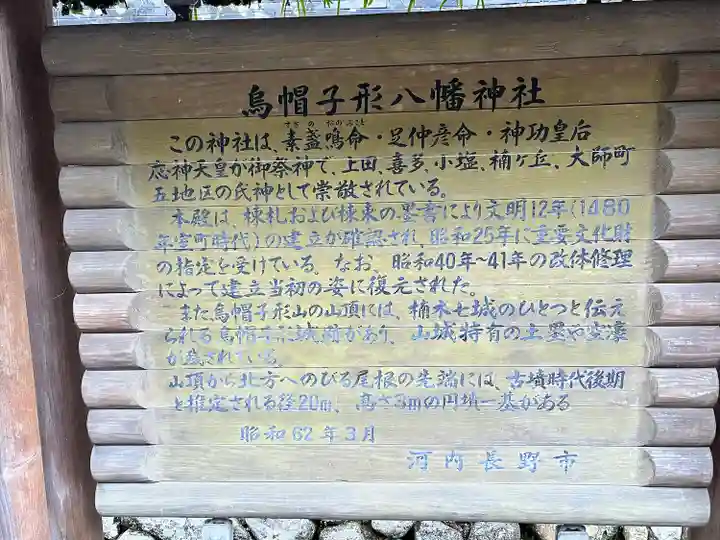 烏帽子形八幡神社
すさの おのみこと
この神社は、素盞嗚命・足仲彦命・神功皇后
応神天皇が御祭神で、上田、喜多、小塩、楠ヶ丘、大師町
五地区の氏神として崇敬されている。
本殿は、棟札および棟束の墨書により文明12年(1480
年室町時代)の建立が確認され、昭和25年に重要文化財
の指定を受けている。なお、昭和40年~41年の改体修理
によって建立当初の姿に復元された。
また烏帽子形山の山頂には、楠木七城のひとつと伝え
られる烏帽子形城跡があり、山城特有の土塁や空濠
が残されている。
山頂から北方へのびる尾根の先端には、古墳時代後期
と推定される径20m、高さ3mの円墳一基がある
昭和62年3月
河内長野市